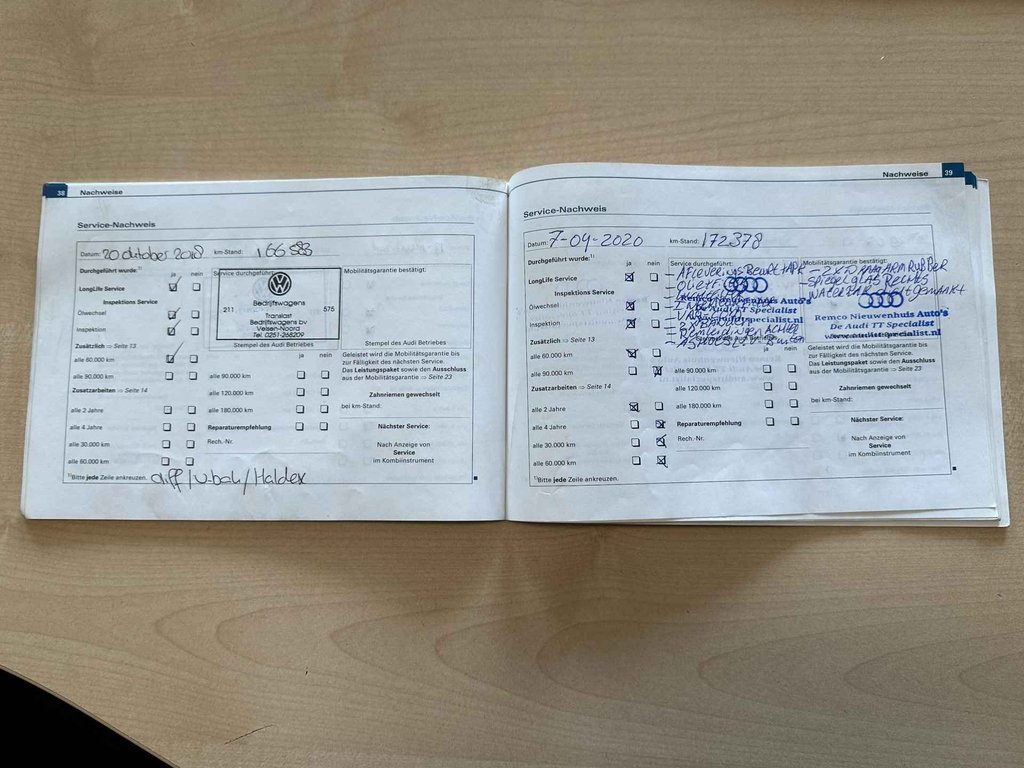 38 Nachweise
Service-Nachweis
Datum: 20 oktober 2018 km-Stand: 166 583
Durchgeführt wurde:¹⁾ ja nein Service durchgeführt: Mobilitätsgarantie bestätigt:
LongLife Service
Inspektions Service
Ölwechsel
Inspektion
Bedrijfswagens
211 575
Translast
Bedrijfswagens bv
Velsen-Noord
Tel. 0251-268209
Zusätzlich ⇨ Seite 13
Stempel des Audi Betriebes
alle 60.000 km
ja nein
Geleistet wird die Mobilitätsgarantie bis
zur Fälligkeit des nächsten Service.
Das Leistungspaket sowie den Ausschluss
aus der Mobilitätsgarantie ⇨ Seite 23
alle 90.000 km
alle 90.000 km
Zusatzarbeiten ⇨ Seite 14
alle 120.000 km
Zahnriemen gewechselt
bei km-Stand:
alle 2 Jahre
alle 180.000 km
alle 4 Jahre
Reparaturempfehlung
Nächster Service:
alle 30.000 km
Rech.-Nr.
Nach Anzeige von
Service
im Kombiinstrument
alle 60.000 km
¹⁾Bitte jede Zeile ankreuzen.
diff/v-bak/Haldex
Nachweise 39
Service-Nachweis
Datum: 7-04-2020 km-Stand: 172378
Durchgeführt wurde:¹⁾ ja nein Service durchgeführt: Mobilitätsgarantie bestätigt:
LongLife Service
Inspektions Service
Ölwechsel
Inspektion
- AFLEVERINGSBEURT + APK
- SPIEGELGLAS RECHTS
Remco Nieuwenhuis Auto's
De Audi TT Specialist
www.auditt-specialist.nl
Remco Nieuwenhuis Auto's
Audi TT Specialist
Zusätzlich ⇨ Seite 13
alle 60.000 km
ja nein
Geleistet wird die Mobilitätsgarantie bis
zur Fälligkeit des nächsten Service.
Das Leistungspaket sowie den Ausschluss
aus der Mobilitätsgarantie ⇨ Seite 23
alle 90.000 km
alle 90.000 km
Zusatzarbeiten ⇨ Seite 14
alle 120.000 km
Zahnriemen gewechselt
bei km-Stand:
alle 2 Jahre
alle 180.000 km
alle 4 Jahre
Reparaturempfehlung
Nächster Service:
alle 30.000 km
Rech.-Nr.
Nach Anzeige von
Service
im Kombiinstrument
alle 60.000 km
¹⁾Bitte jede Zeile ankreuzen.